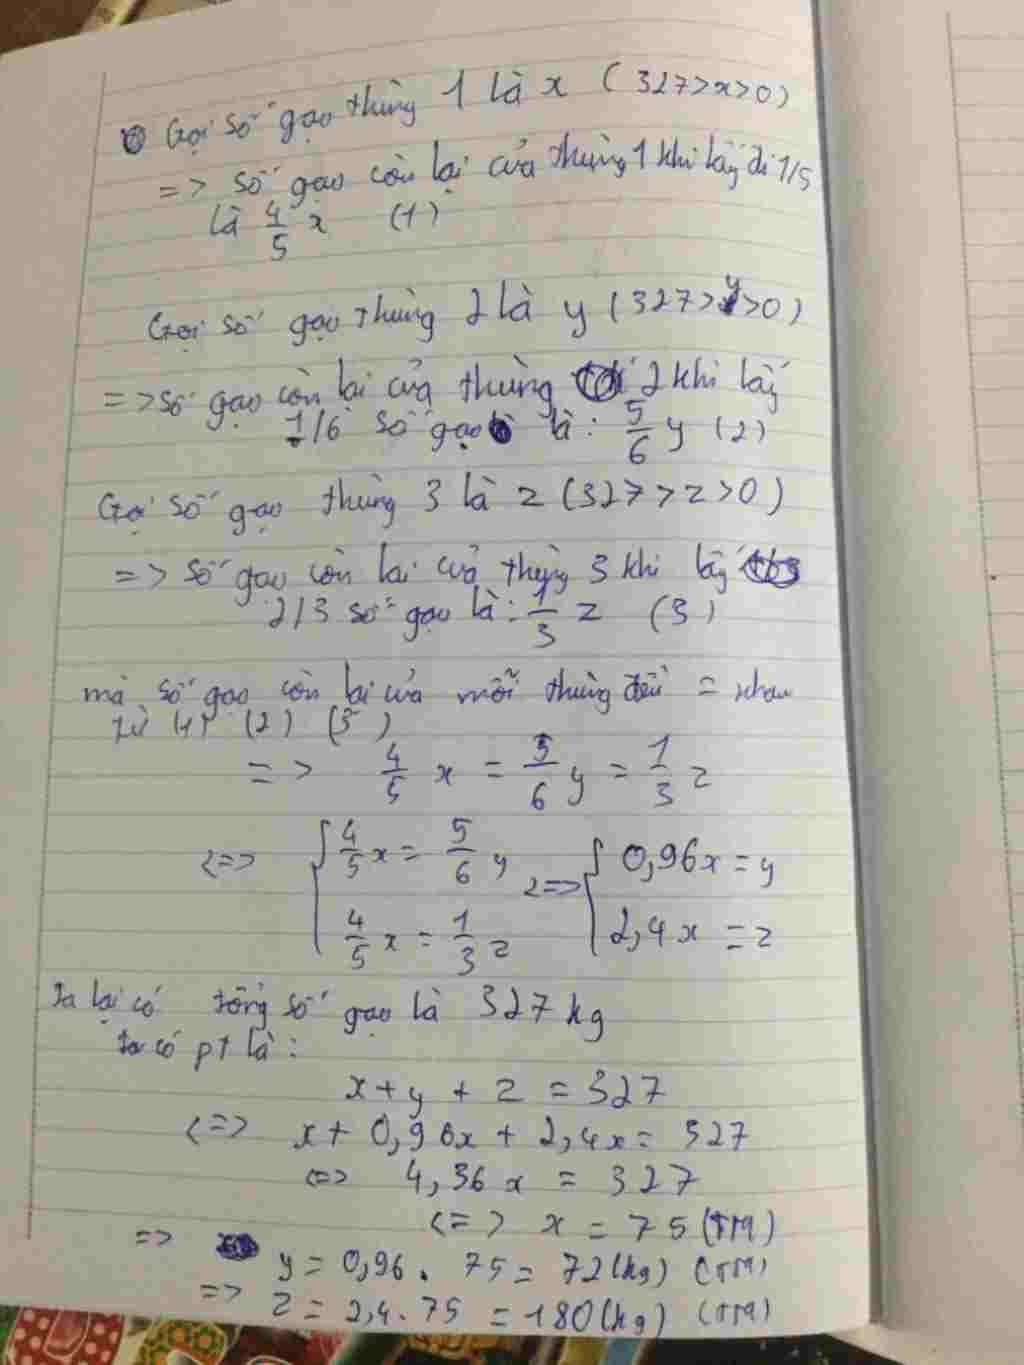 Gọi số gạo thùng 1 là x (327>x>0)
=> số gạo còn lại của thùng 1 khi lấy đi 1/5
là 4/5 x (1)
Gọi số gạo thùng 2 là y (327>y>0)
=> số gạo còn lại của thùng 2 khi lấy
1/6 số gạo là: 5/6 y (2)
Gọi số gạo thùng 3 là z (327>z>0)
=> số gạo còn lại của thùng 3 khi lấy
2/3 số gạo là: 1/3 z (3)
mà số gạo còn lại của mỗi thùng đều = nhau
từ (1) (2) (3)
=> 4/5 x = 5/6 y = 1/3 z
<=> { 4/5 x = 5/6 y <=> { 0,96x = y
4/5 x = 1/3 z 2,4x = z
Ta lại có tổng số gạo là 327 kg
ta có pt là:
x + y + z = 327
<=> x + 0,96x + 2,4x = 327
<=> 4,36x = 327
<=> x = 75 (TM)
=> y = 0,96 . 75 = 72 (kg) (TM)
=> z = 2,4 . 75 = 180 (kg) (TM)